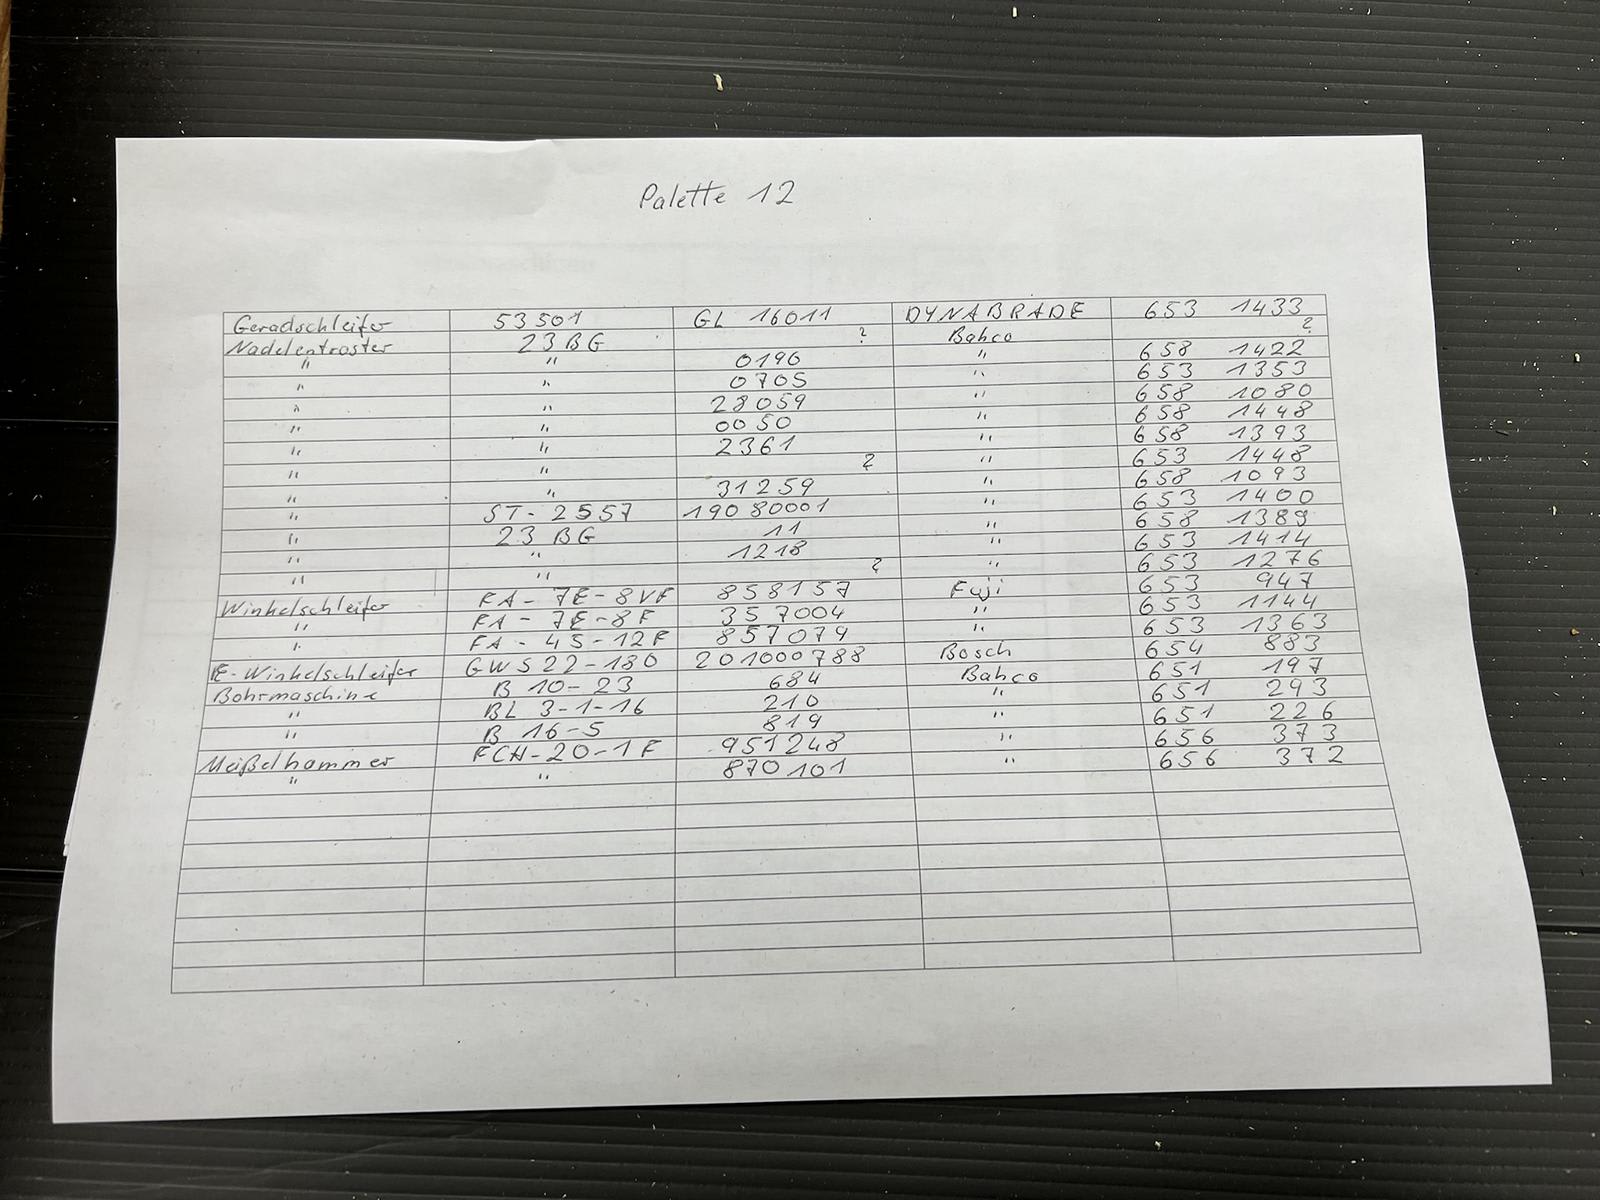 Palette 12
Geradschleifer 53501 GL 16011 DYNABRADE 653 1433
Nadelentroster 23BG ? Bahco ?
" " 0196 " 658 1422
" " 0705 " 653 1353
" " 28059 " 658 1080
" " 0050 " 658 1448
" " 2361 " 658 1393
" " ? " 653 1448
" " 31259 " 658 1093
" ST-2557 19080001 " 653 1400
" 23BG 11 " 658 1389
" " 1218 " 653 1414
" " ? " 653 1276
Winkelschleifer FA-7E-8VF 858157 Fuji 653 947
" FA-7E-8F 357004 " 653 1144
" FA-4S-12F 857079 " 653 1363
E-Winkelschleifer GWS22-180 201000788 Bosch 654 883
Bohrmaschine B 10-23 684 Bahco 651 197
" BL 3-1-16 210 " 651 293
" B 16-5 819 " 651 226
Meißelhammer FCH-20-1F 951248 " 656 373
" " 870101 " 656 372